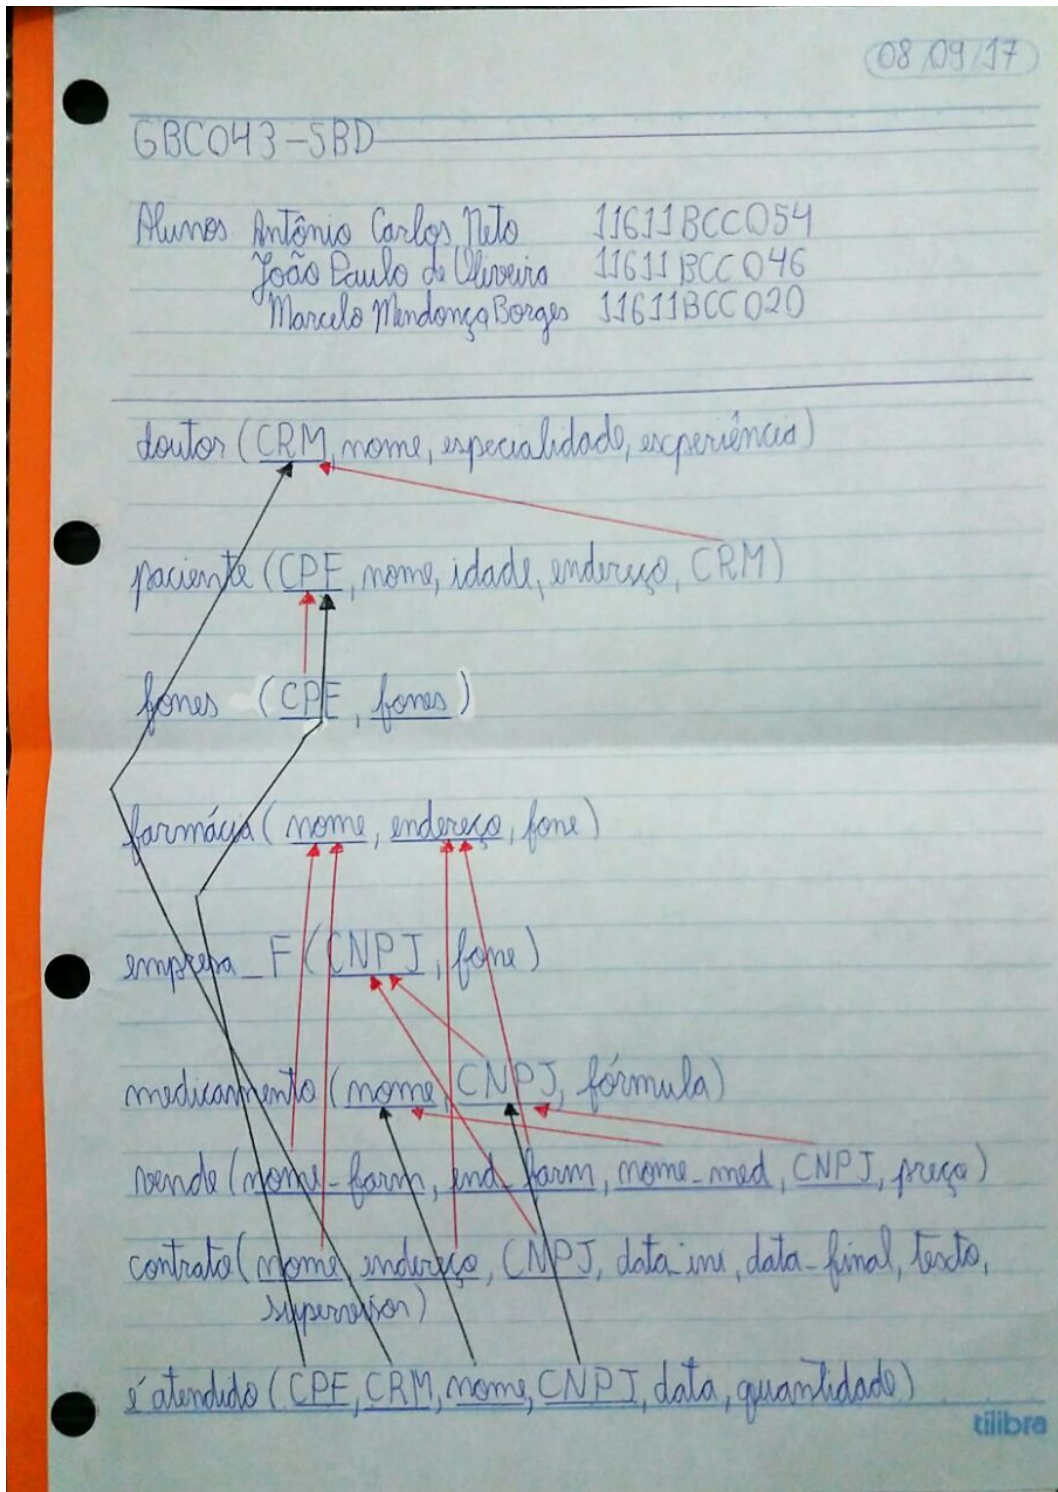 08/09/17
GBC043-SBD
Alunos Antônio Carlos Neto 11611BCC054
João Paulo de Oliveira 11611BCC046
Marcelo Mendonça Borges 11611BCC020
doutor (CRM, nome, especialidade, experiência)
paciente (CPF, nome, idade, endereço, CRM)
fones (CPF, fones)
farmácia (nome, endereço, fone)
empresa_F (CNPJ, fone)
medicamento (nome, CNPJ, fórmula)
vende (nome-farm, end-farm, nome-med, CNPJ, preço)
contrato (nome, endereço, CNPJ, data-ini, data-final, texto,
supervisor)
é atendido (CPF, CRM, nome, CNPJ, data, quantidade)
tilibra